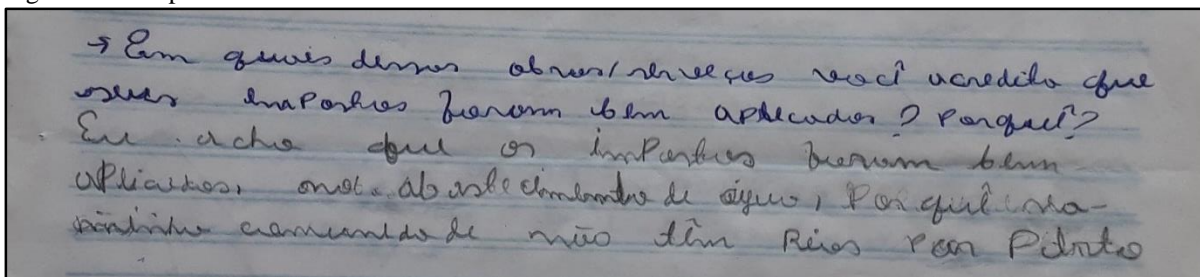 → Em quais dessas obras/serviços você acredita que
seus impostos foram bem aplicados? Porquê?
Eu acho que os impostos foram bem
aplicados, no abastecimento de água, Porquê na
minha comunidade não têm Rios por Perto